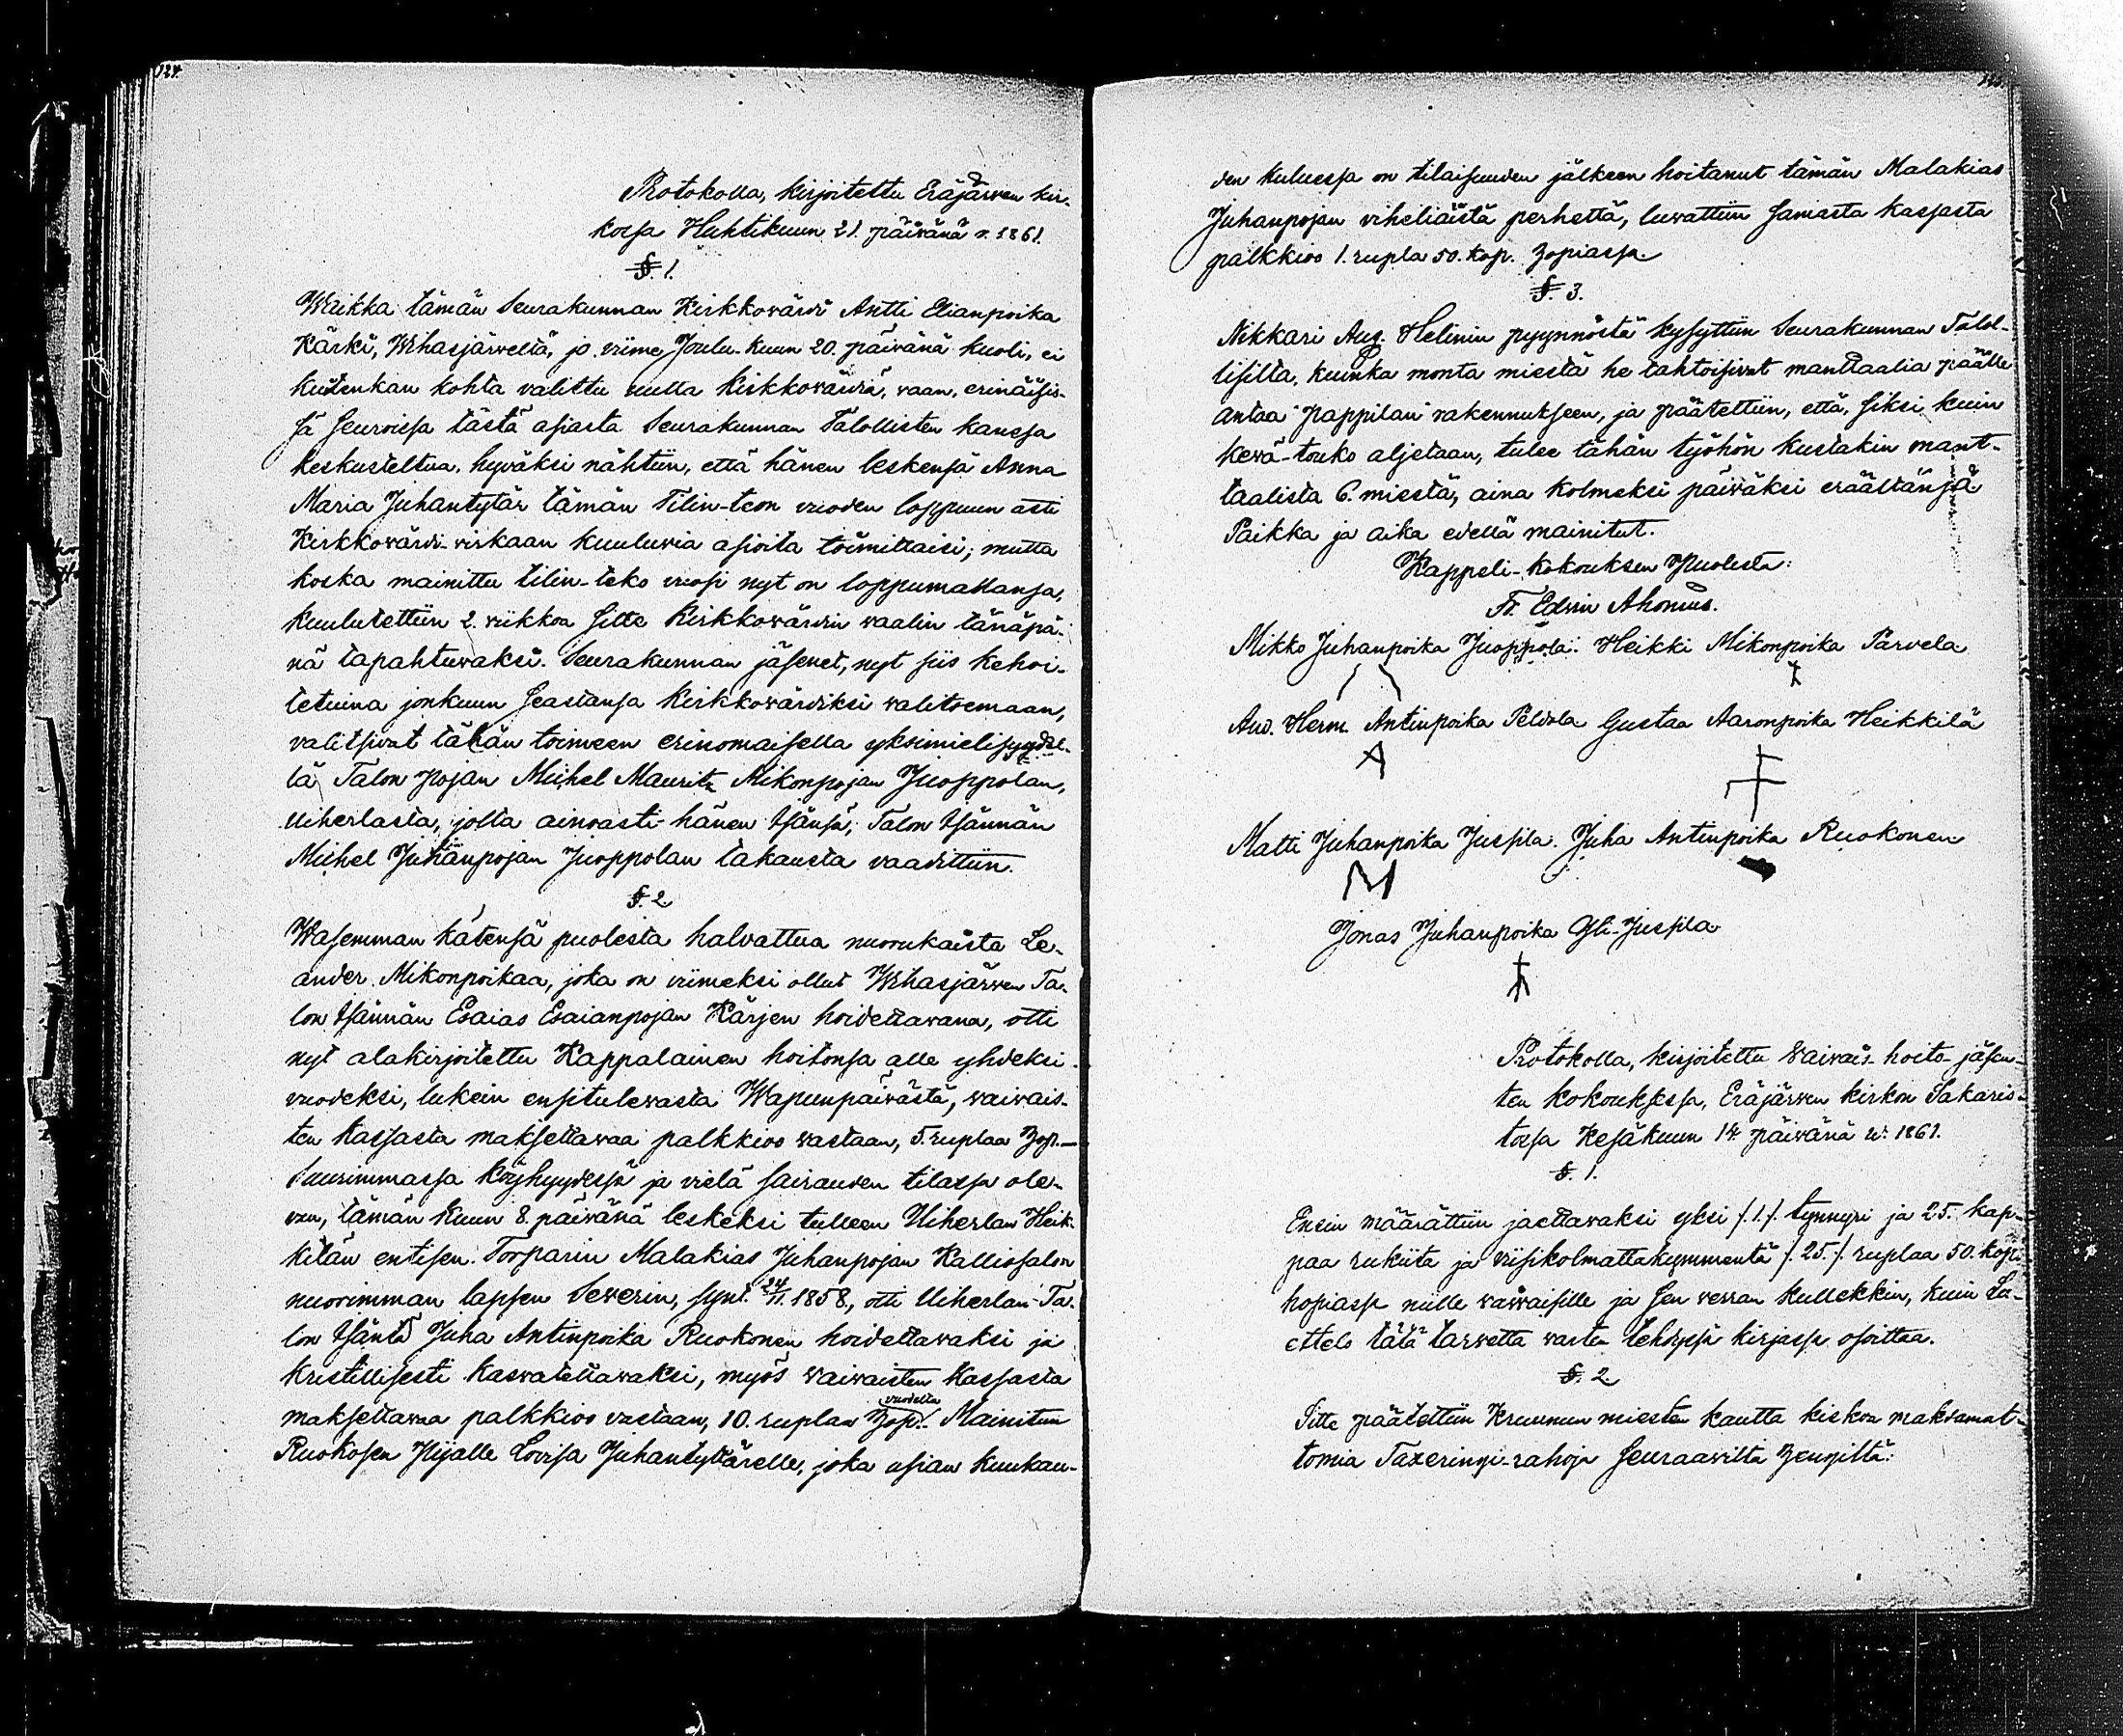 124.
Protokolla, kirjoitettu Eräjärwen kir-
kossa Huhtikuun 21. päiwänä v. 1861.
§. 1.
Waikka tämän Seurakunnan Kirkkowärdi Antti Elianpoika
Kärki, Wihasjärweltä, jo viime Joulu-kuun 20. päiwänä kuoli, ei
kuitenkan kohta valittu uutta Kirkkowärdiä, vaan, erinäisis-
sä seuroissa tästä asiasta Seurakunnan Talollisten kanssa
keskusteltua, hyväksi nähtiin, että hänen leskensä Anna
Maria Juhantytär tämän Tilin-teon vuoden loppuun asti
Kirkkowärdi-virkaan kuuluvia asioita toimittaisi; mutta
koska mainittu tilin-teko vuosi nyt on loppumallansa,
kuulutettiin 2. viikkoa sitte Kirkkowärdin vaalin tänäpä-
nä tapahtuvaksi. Seurakunnan jäsenet, nyt siis kehoi-
tetuina jonkuun seastansa Kirkkowärdiksi valitsemaan,
valitsivat tähän toimeen erinomaisella yksimielisyydel-
lä Talon pojan Michel Maurits Mikonpojan Juoppolan,
Uiherlasta, jolta ainoasti hänen Isänsä, Talon Isännän
Michel Juhanpojan Juoppolan takausta vaadittiin.
§. 2
Wasemman kätensä puolesta halvattua nuorukaista Le-
ander Mikonpoikaa, joka on viimeksi ollut Wihasjärwen Ta-
lon Isännän Esaias Esaianpojan Kärjen hoidettavana, otti
nyt alakirjoitettu Kappalainen hoitonsa alle yhdeksi
vuodeksi, lukein ensitulevasta Wapunpäivästä, vaivais-
ten kassasta maksettavaa palkkioo vastaan, 5. ruplaa hop.—
Suurimmassa köyhyydessä ja vielä sairauden tilassa ole-
van, tämän kuun 8. päivänä leskeksi tulleen Uiherlan Heik-
kilän entisen Torparin Malakias Juhanpojan Kalliosalon
nuorimman lapsen Severin, synt. 24/11. 1858, otti Uiherlan Ta-
lon Isäntä Juha Antinpoika Ruokonen hoidettavaksi ja
kristillisesti kasvatettavaksi, myös vaivaisten kassasta
vuodelta
maksettavaa palkkioo vastaan, 10. ruplaa hop. Mainitun
Ruokosen Piijalle Lovisa Juhantyttärelle, joka usian kuukau-
den kuluessa on tilaisuuden jälkeen hoitanut tämän Malakias
Juhanpojan viheliäistä perhettä, luvattiin samasta kassasta
palkkioo 1. rupla 50. kop. hopiassa.
§. 3.
Nikkari Aug. Helinin pyynnöstä kysyttiin Seurakunnan Talol-
lisilta, kuinka monta miestä he tahtoisivat manttaalia päälle
antaa pappilan rakennukseen, ja päätettiin, että, siksi kuin
kevä-touko aljetaan, tulee tähän työhön kustakin mant-
taalista 6. miestä, aina kolmeksi päiväksi eräältänsä
Paikka ja aika edellä mainitut.
Kappeli-kokouksen Puolesta:
Fr. Edvin Ahonius.
Mikko Juhanpoika Juoppola. Heikki Mikonpoika Parvela
And. Herm. Antinpoika Peldola Gustaa Aaronpoika Heikkilä
Matti Juhanpoika Jussila. Juha Antinpoika Ruokonen
Jonas Juhanpoika Yli-Jussila
Protokolla, kirjoitettu Vaivais-hoito-jäsen-
ten kokouksessa, Eräjärwen kirkon Sakaris-
tossa Kesäkuun 14. päivänä v. 1861.
§. 1.
Ensin määrättiin jaettavaksi yksi /.1./. tynnyri ja 25. kap-
paa rukiita ja viisikolmattakymmentä /. 25./. ruplaa 50. kop.
hopiassa niille vaivaisille ja sen verran kullekkin, kuin Lu-
ettelo tätä tarvetta varten tehdyssä kirjassa osoittaa.
§. 2
Sitte päätettiin Kruunun miesten kautta kiskoa maksamat-
tomia Taxeringi-rahoja seuraavilta hengiltä: